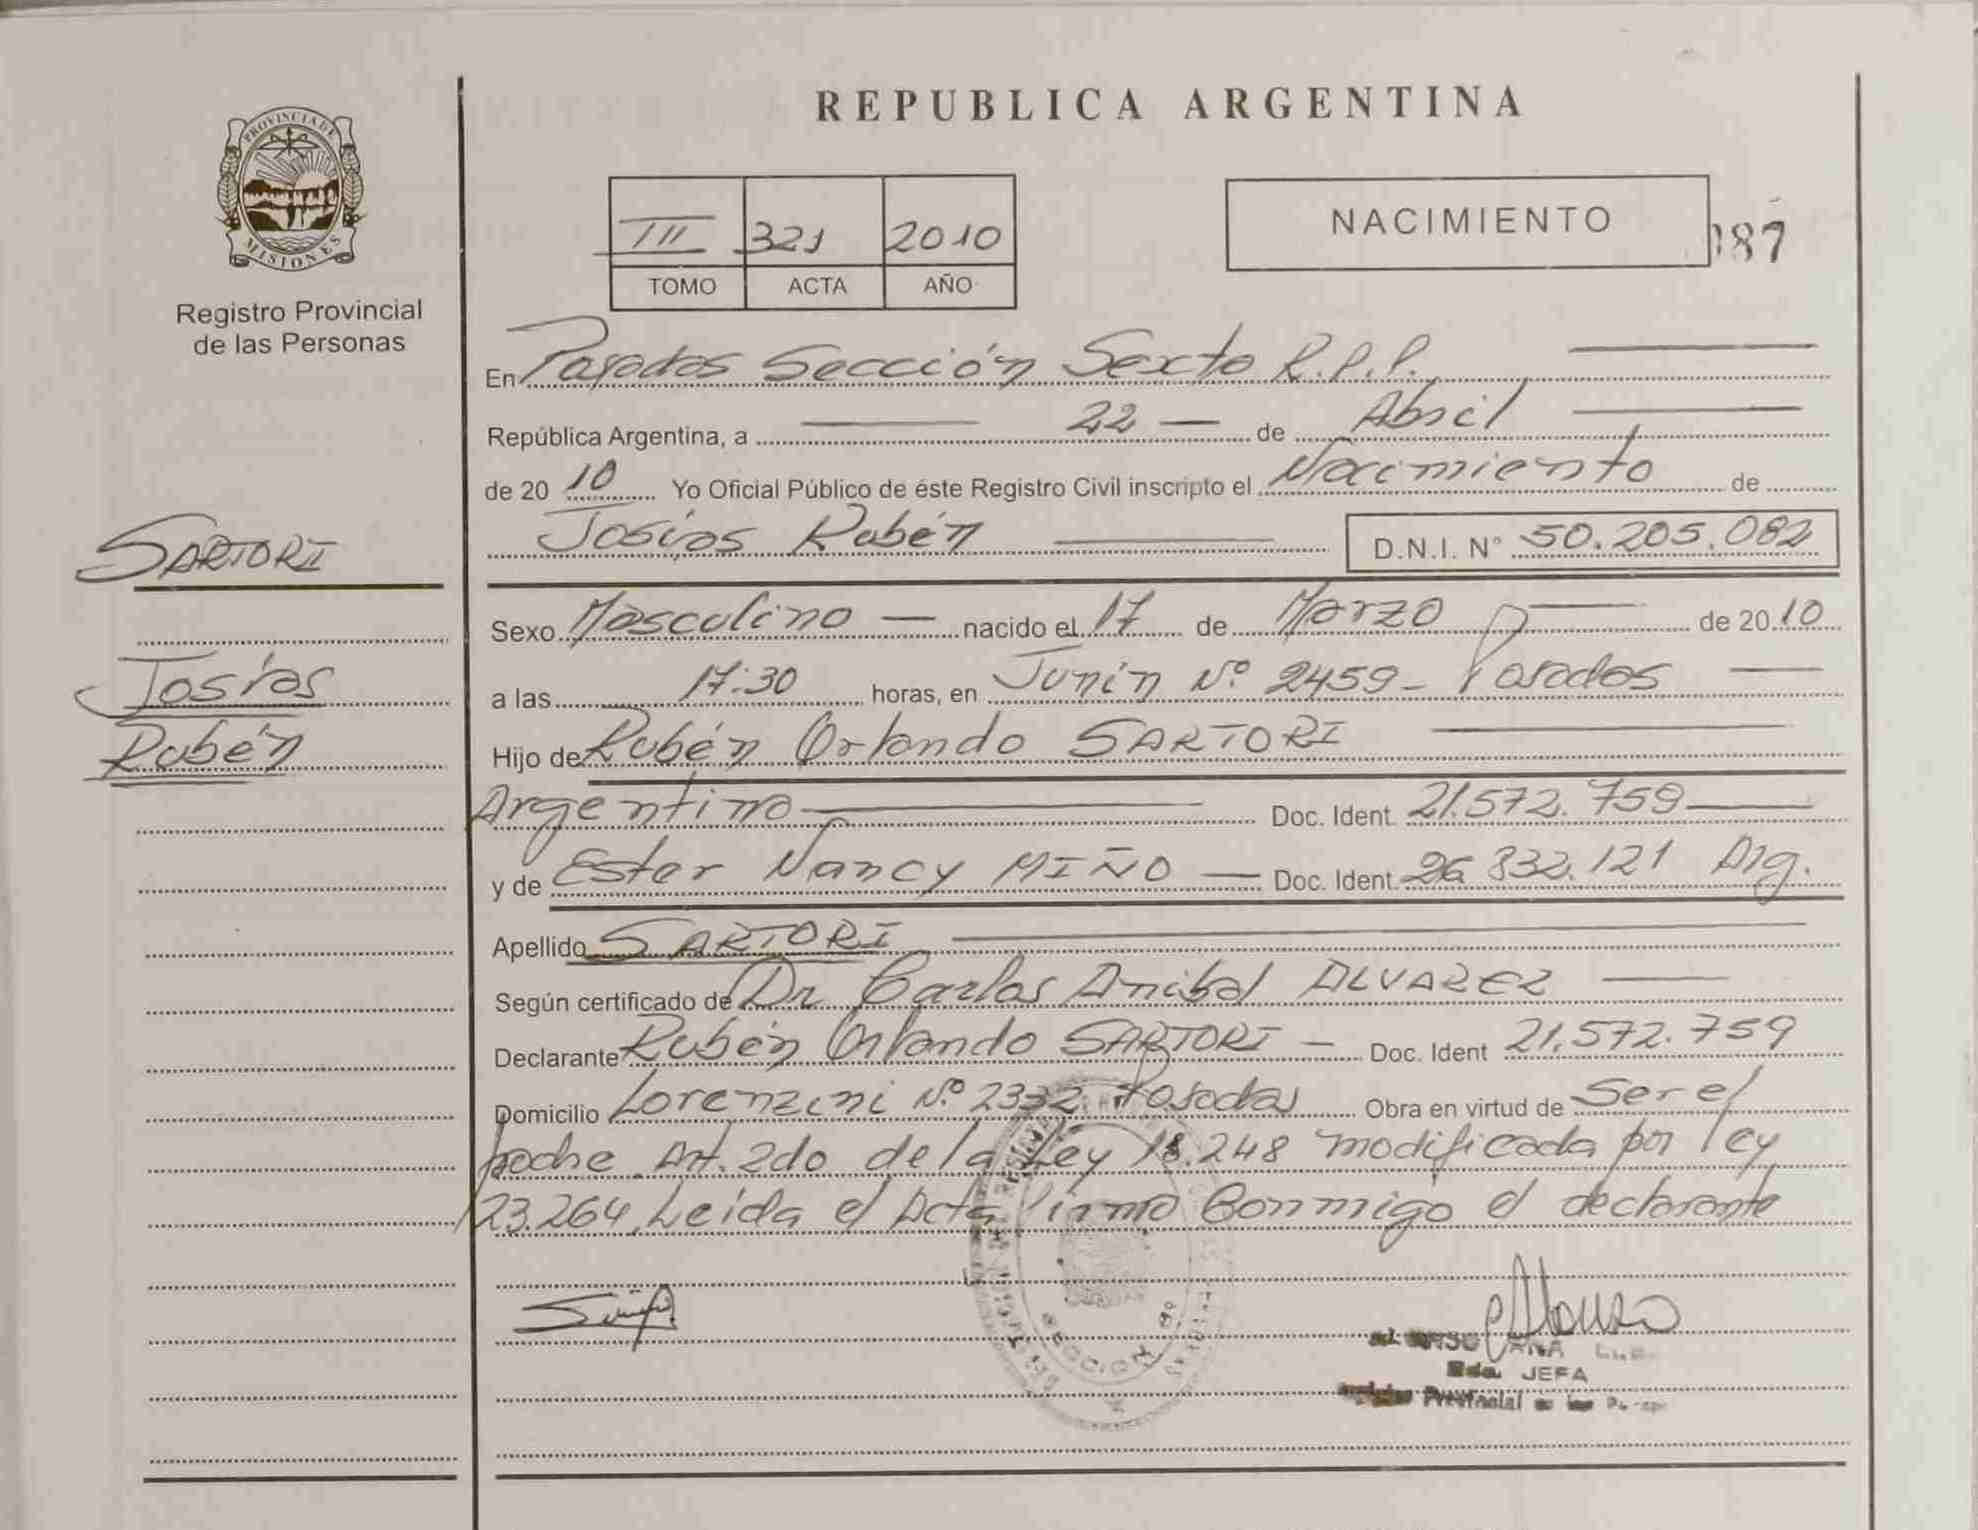 PROVINCIA DE
MISIONES
Registro Provincial
de las Personas
SARTORI
Josías
Rubén
REPUBLICA ARGENTINA
III 321 2010
TOMO ACTA AÑO
NACIMIENTO
187
En Posadas Sección Sexta R.P.P.
República Argentina, a 22 de Abril
de 2010 Yo Oficial Público de éste Registro Civil inscripto el Nacimiento de
Josías Rubén D.N.I. N° 50.205.082
Sexo Masculino nacido el 17 de Marzo de 2010
a las 17:30 horas, en Junín Nº 2459 - Posadas
Hijo de Rubén Orlando SARTORI
Argentino Doc. Ident. 21.572.759
y de Ester Nancy MIÑO Doc. Ident. 26.332.121 Arg.
Apellido SARTORI
Según certificado de Dr Carlos Anibal ALVAREZ
Declarante Rubén Orlando SARTORI - Doc. Ident 21.572.759
Domicilio Lorenzini Nº 2332 Posadas Obra en virtud de Ser el
padre. Art. 2do de la Ley 18.248 modificada por ley
23.264. Leída el Acta firma Conmigo el declarante
SECCION
ANA
JEFA
Provincial de las